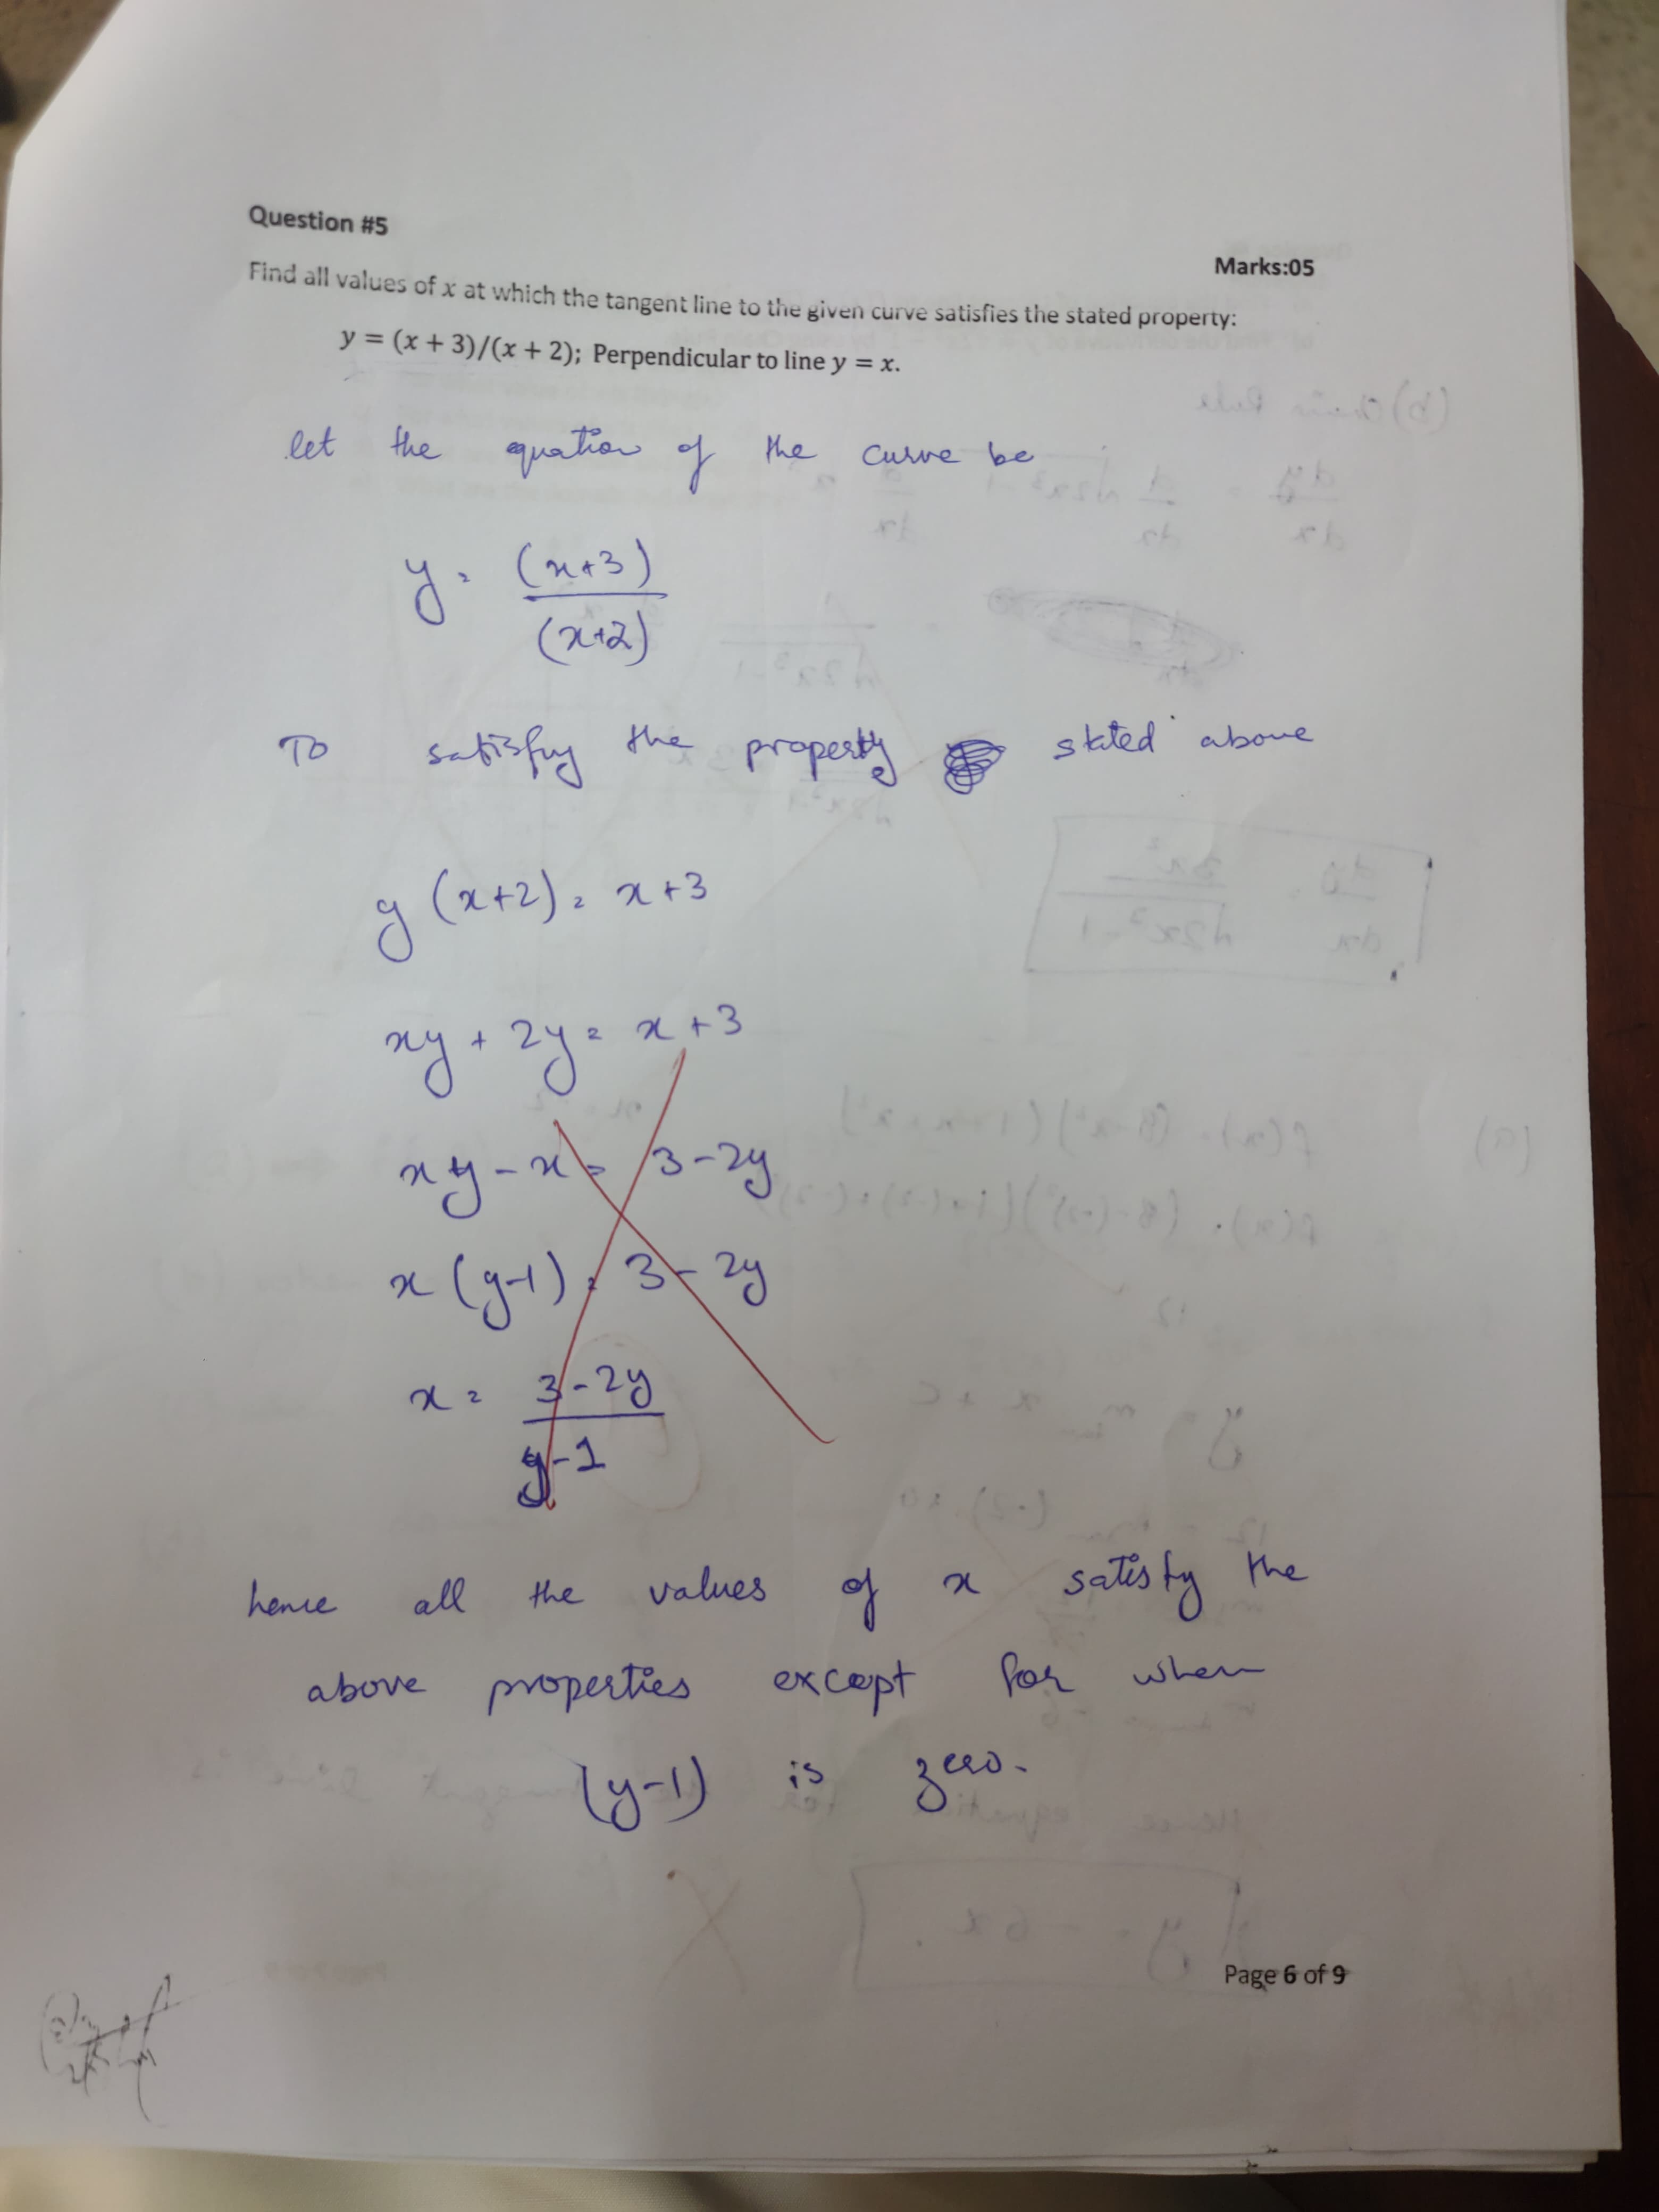 Question #5
Marks:05
Find all values of x at which the tangent line to the given curve satisfies the stated property:
y = (x + 3)/(x + 2); Perpendicular to line y = x.
let the equation of the curve be
y = (x+3)/(x+2)
To satisfy the property stated above
y (x+2) = x+3
xy + 2y = x+3
xy - x = 3-2y
x (y-1) = 3-2y
x = 3-2y/y-1
hence all the values of x satisfy the
above properties except for when
(y-1) is zero.
Page 6 of 9